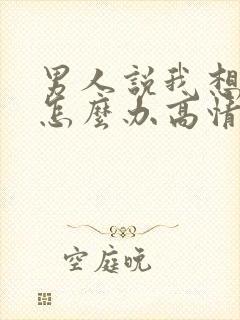 男人説我想
怎麼办高情
空庭晚